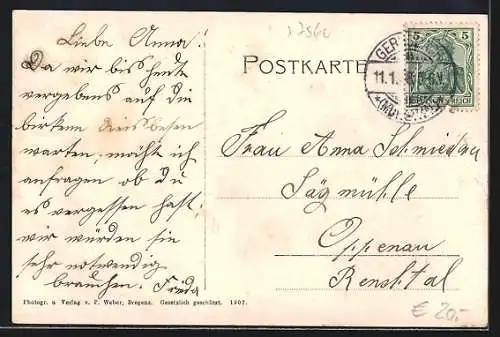 Liebe Anna!
Da wir bis heute
vergebens auf die
birkene Reisbesen
warten, möcht ich
anfragen ob du
es vergessen hast;
wir würden sie
sehr notwendig
brauchen. Frida
Photogr. u Verlag v. P. Weber, Bregenz. Gesetzlich geschützt. 1907.
POSTKARTE
5 5
11.1.
Frau Anna
Sägmühle
Oppenau
Renchtal
€ 20,-